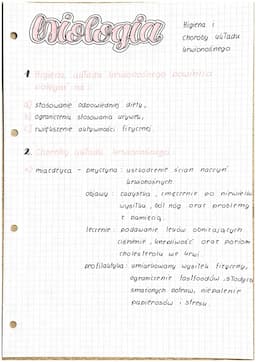 biologia
Higiena i
choroby układu
krwionośnego
1 Higiena układu krwionośnego powinna
polegać na:
a) stosowanie odpowiedniej diety,
b) ograniczenia stosowania używek,
c) zwiększenie aktywności fizycznej
2. Choroby układu krwionośnego
a) miażdżyca - przyczyna: uszkodzenie ścian naczyń
krwionośnych
objawy: zadyszka, zmęczenie po niewielkim
wysiłku, ból nóg oraz problemy
z pamięcią.
leczenie: podawanie leków obniżających
ciśnienie, krzepliwość oraz poziom
cholesterolu we krwi.
profilaktyka: umiarkowany wysiłek fizyczny,
ograniczenie fastfoodów, słodyczy
smażonych potraw, niepalenie
papierosów i stresu